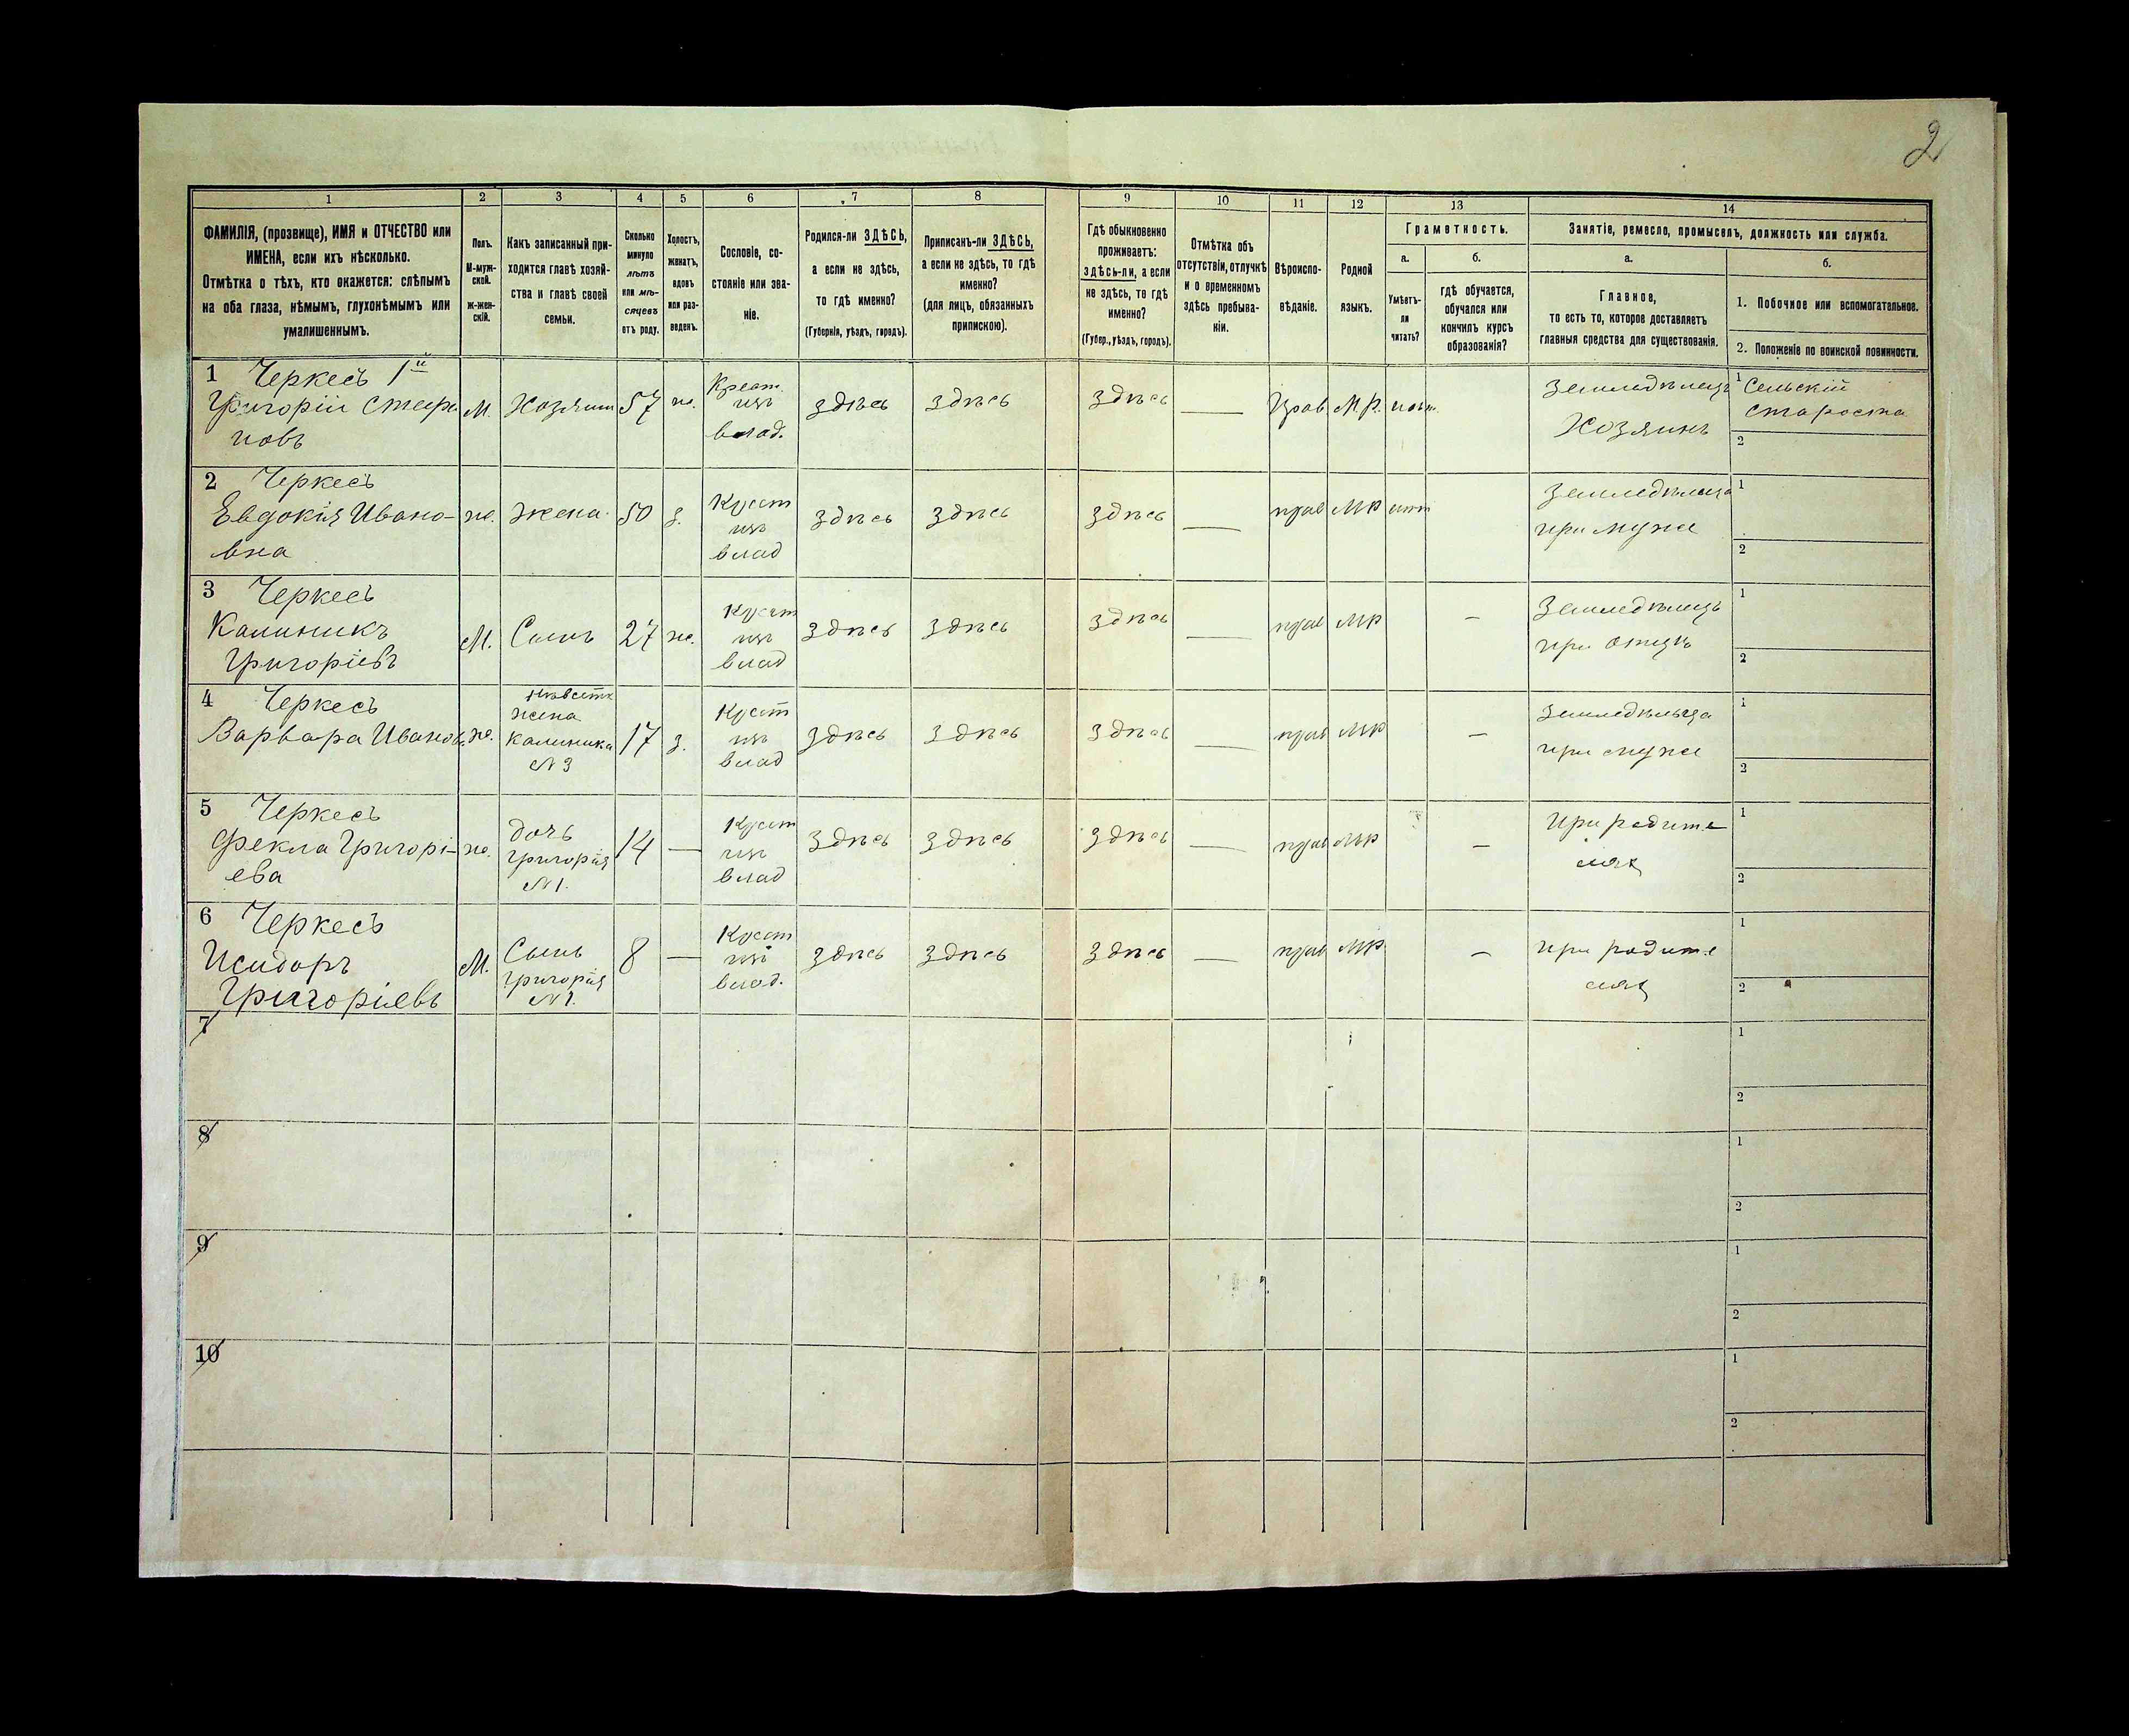 2
1 2 3 4 5 6 7 8 9 10 11 12 13 14
ФАМИЛІЯ, (прозвище), ИМЯ и ОТЧЕСТВО или
ИМЕНА, если ихъ нѣсколько.
Отмѣтка о тѣхъ, кто окажется: слѣпымъ
на оба глаза, нѣмымъ, глухонѣмымъ или
умалишеннымъ.
Полъ.
М-муж-
ской.
ж-жен-
скій.
Какъ записанный при-
ходится главѣ хозяй-
ства и главѣ своей
семьи.
Сколько
минуло
лѣтъ
или мѣ-
сяцевъ
отъ роду.
Холостъ,
женатъ,
вдовъ
или раз-
веденъ.
Сословіе, со-
стояніе или зва-
ніе.
Родился-ли ЗДѢСЬ,
а если не здѣсь,
то гдѣ именно?
(Губернія, уѣздъ, городъ).
Приписанъ-ли ЗДѢСЬ,
а если не здѣсь, то гдѣ
именно?
(для лицъ, обязанныхъ
припискою).
Гдѣ обыкновенно
проживаетъ:
здѣсь-ли, а если
не здѣсь, то гдѣ
именно?
(Губер., уѣздъ, городъ).
Отмѣтка объ
отсутствіи, отлучкѣ
и о временномъ
здѣсь пребыва-
ніи.
Вѣроиспо-
вѣданіе.
Родной
языкъ.
Грамотность.
а.
Умѣетъ-
ли
читать?
б.
гдѣ обучается,
обучался или
кончилъ курсъ
образованія?
Занятіе, ремесло, промыселъ, должность или служба.
а.
Главное,
то есть то, которое доставляетъ
главныя средства для существованія.
б.
1. Побочное или вспомогательное.
2. Положеніе по воинской повинности.
1 Черкесъ 1й
Григорій Стефа
новъ
М.
Хозяин
57
ж.
Крест.
изъ
влад.
здѣсь
здѣсь
здѣсь
—
Прав
М.Р.
Земледѣлецъ
Хозяинъ
1 Сельскій
староста
2
2 Черкесъ
Евдокія Ивано-
вна
ж.
жена
50
з.
Крест
изъ
влад
здѣсь
здѣсь
здѣсь
—
прав
МР
нѣт
Земледѣлица
при мужѣ
1
2
3 Черкесъ
Калиникъ
Григоріевъ
М.
Сынъ
27
ж.
Крест
изъ
влад
здѣсь
здѣсь
здѣсь
—
прав
МР
—
Земледѣлецъ
при отцѣ
1
2
4 Черкесъ
Варвара Иванов.
ж.
Невѣстк
жена
Калиника
№ 3
17
з.
Крест
изъ
влад
здѣсь
здѣсь
здѣсь
—
прав
МР
—
Земледѣлица
при мужѣ
1
2
5 Черкесъ
Фекла Григорі-
ева
ж.
дочь
Григорія
№ 1.
14
—
Крест
изъ
влад
здѣсь
здѣсь
здѣсь
—
прав
МР
—
При родите
лях
1
2
6 Черкесъ
Исидоръ
Григоріевъ
М.
Сынъ
Григорія
№ 1.
8
—
Крест
изъ
влад.
здѣсь
здѣсь
здѣсь
—
прав
МР
—
при родите
лях
1
2
7
1
2
8
1
2
9
1
2
10
1
2